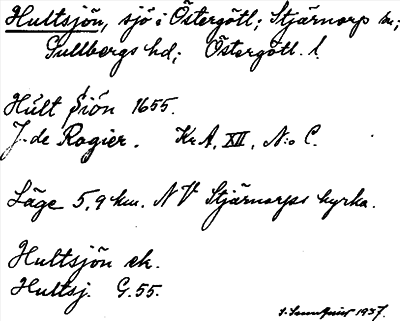 Hultsjön, sjö i Östergötl; Stjärnorp sn;
Gullbergs hd; Östergötl. l.
Hult Siön 1655.
J. de Rogier. Kr A. XII, N:o C.
Läge 5,9 km. NV Stjärnorps kyrka.
Hultsjön ek.
Hultsj. G. 55.
1937.